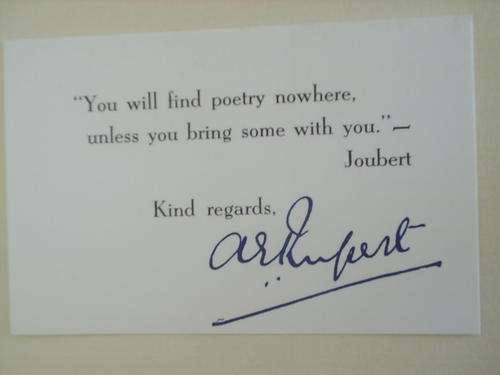 "You will find poetry nowhere,
unless you bring some with you."—
Joubert
Kind regards,
AERupert